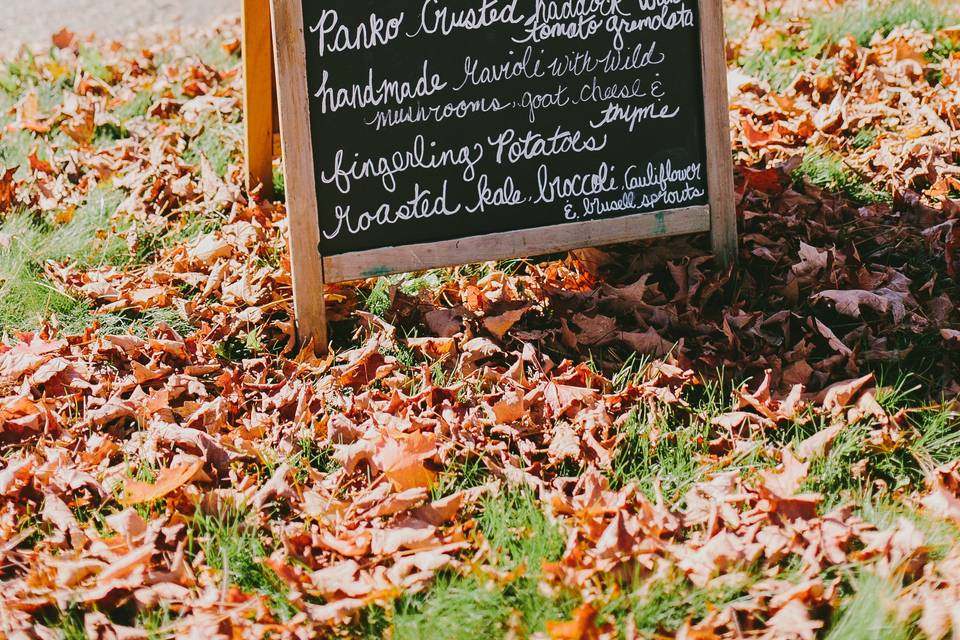 Panko Crusted haddock with
tomato gremolata
handmade ravioli with wild
mushrooms, goat cheese &
thyme
fingerling Potatoes
roasted kale, broccoli, Cauliflower
& brusell sprouts